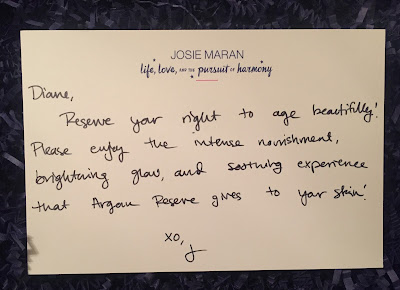 JOSIE MARAN
life, love, AND THE pursuit OF harmony
Diane,
Reserve your right to age beautifully!
Please enjoy the intense nourishment,
brightning glow, and soothing experience
that Argan Reserve gives to your skin!
xo,
J